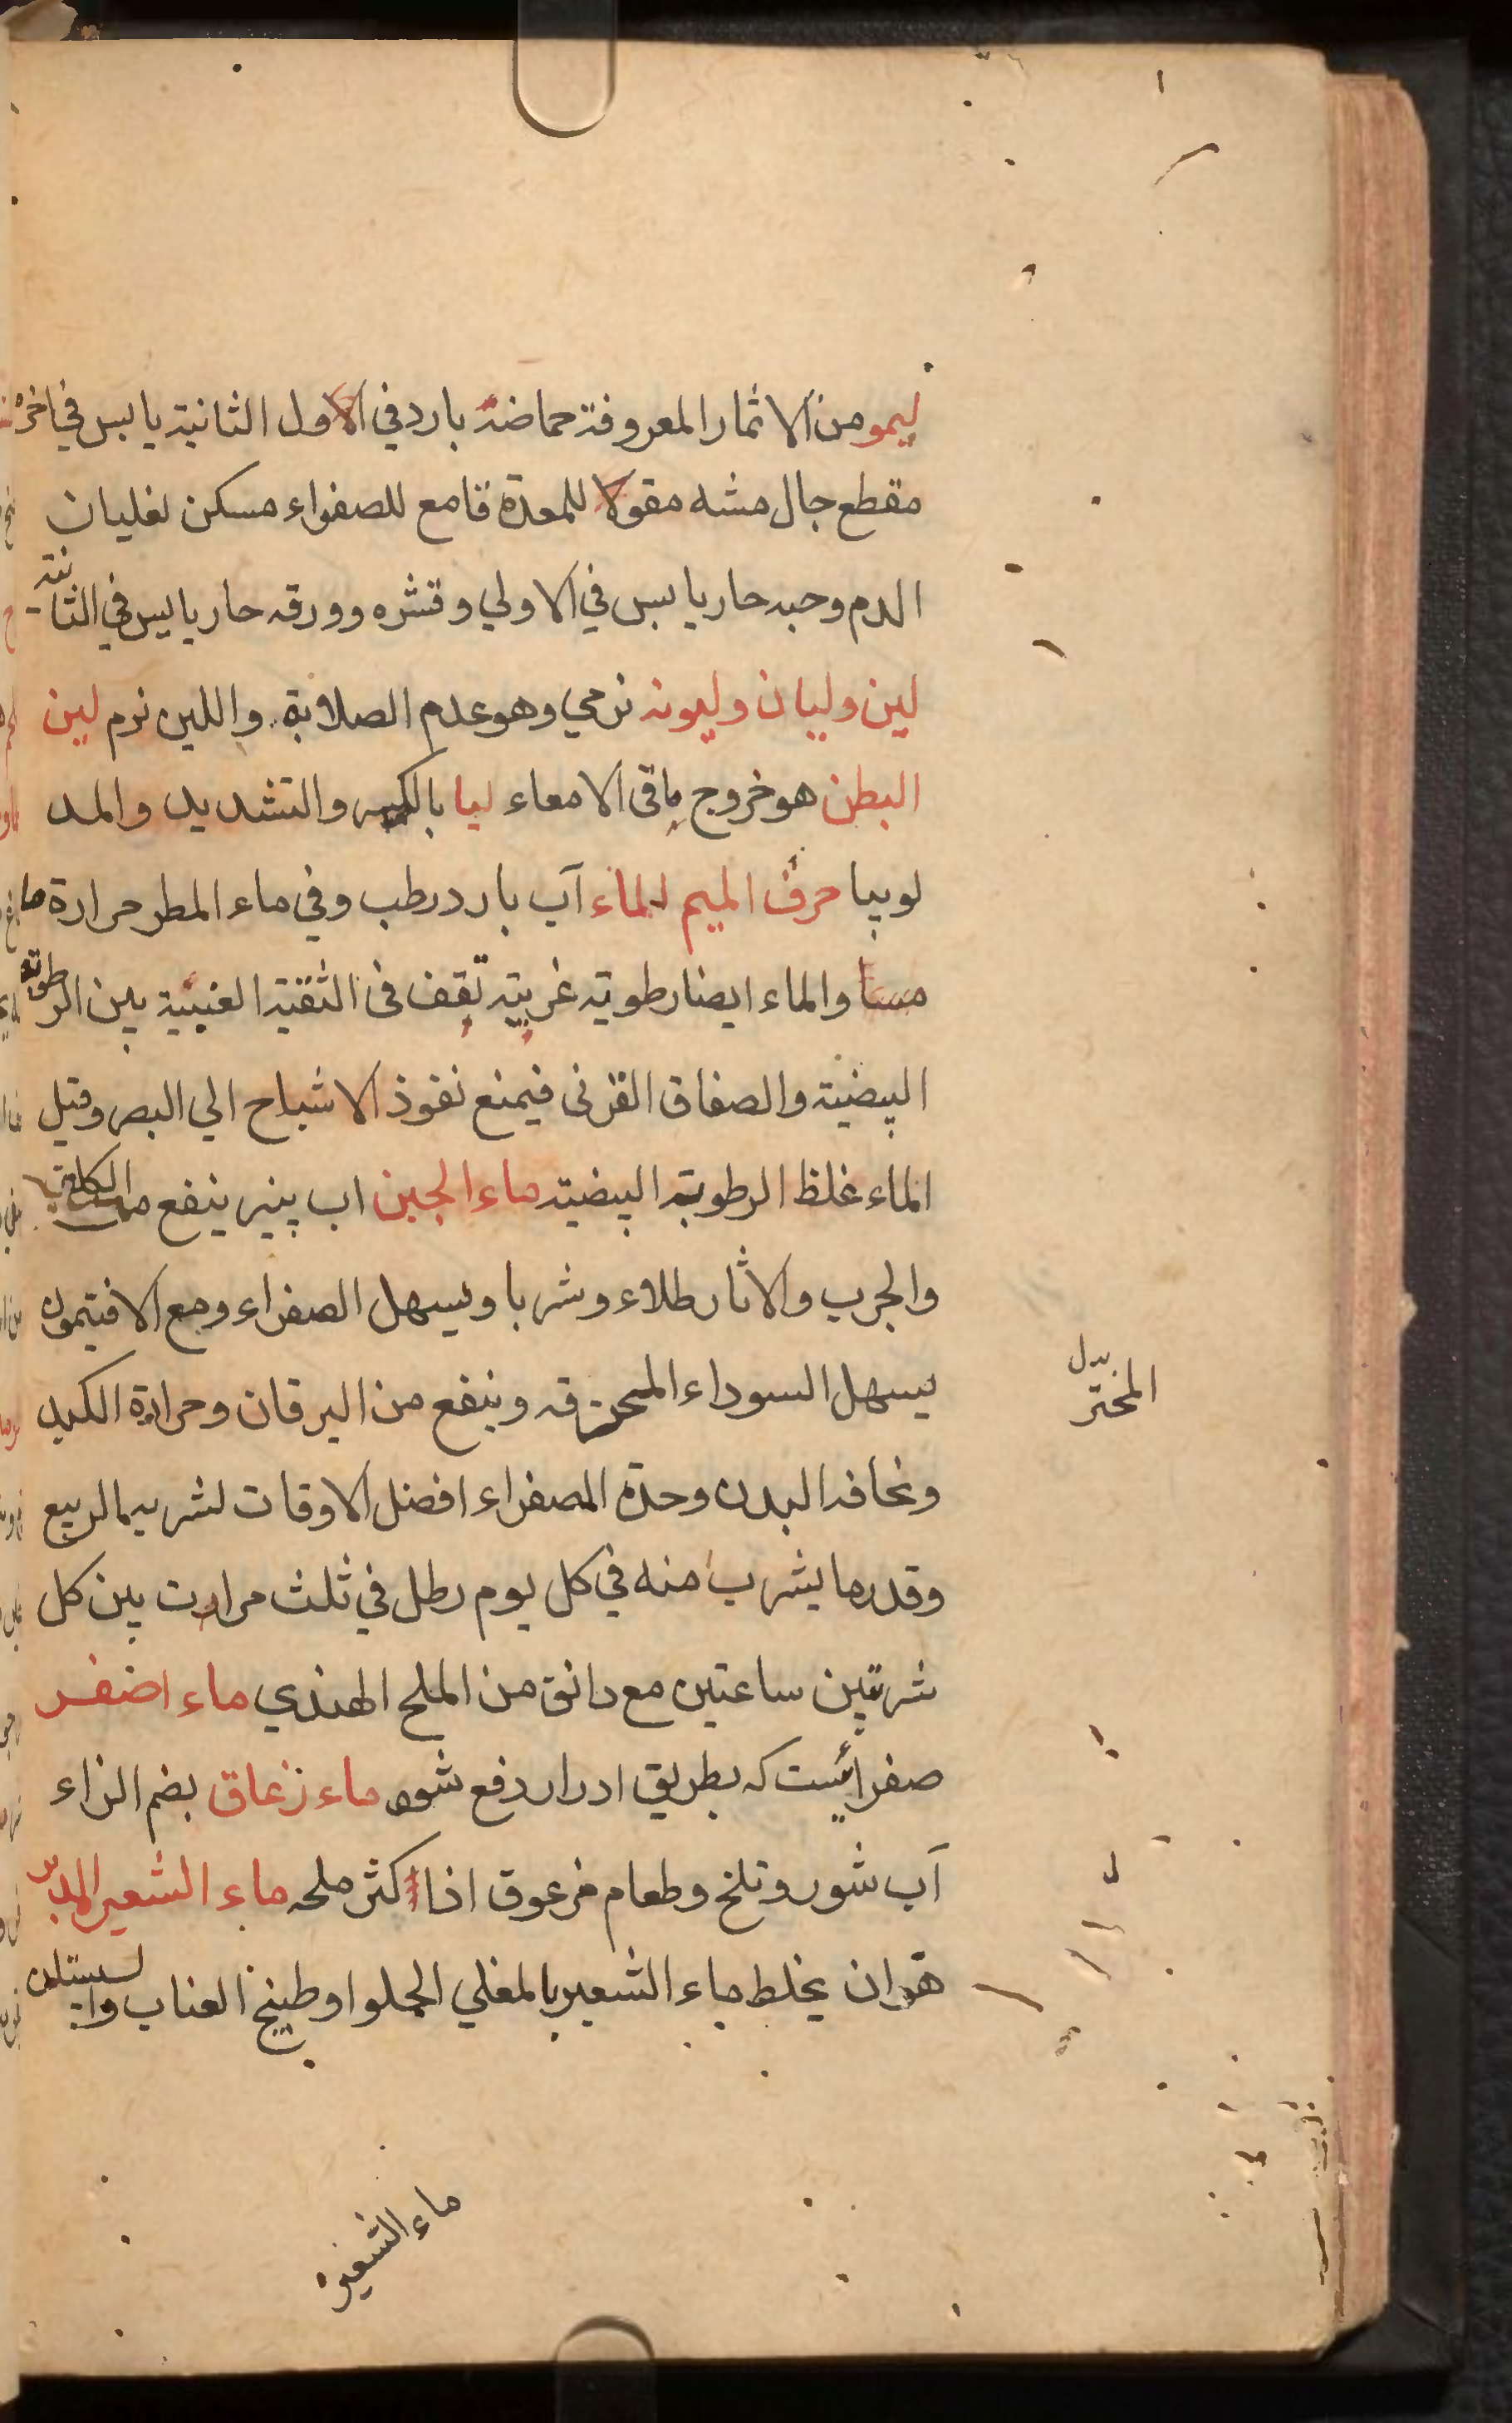 ليمو من الاثمار المعروفة حماضه بارد في الاول الثانية يابس في اخره
مقطع جال مشه مقولا للمعدة قامع للصفراء مسكن لغليان
الدم وحبه حار يابس في الاولي وقشره وورقه حار يابس في الثانية
لين وليان وليونه نرمي وهو عدم الصلابة واللين نرم لين
البطن هو خروج باقى الامعاء ليا بالكسر والتشديد والمد
لوبيا حرف الميم الماء آب بارد رطب وفي ماء المطر حرارة ما
والماء ايضا رطوبة غريبة تقف فى الثقبة العنبية بين الرطوبة
البيضية والصفاق القرنى فيمنع نفوذ الاشباح الي البصر وقيل
الماء غلظ الرطوبة البيضية ماء الجبن اب پنير ينفع من الكلف
والجرب والاثار طلاء وشربا ويسهل الصفراء ومع الافتيمون
يسهل السوداء المحرقه وينفع من اليرقان وحرارة الكبد
ونحافه البدن وحدة الصفراء افضل الاوقات لشربها الربيع
وقدر ما يشرب منه في كل يوم رطل في ثلث مرات بين كل
شربتين ساعتين مع دانق من الملح الهندي ماء اصفر
صفرائيست كه بطريق ادرار دفع شود ماء زعاق بضم الزاء
آب شور وتلخ وطعام مزعوق اذا اكثر ملحه ماء الشعير المدبر
هو ان يخلط ماء الشعير بالمغلي الحلو او طبيخ العناب والسبستان
ماء الشعير